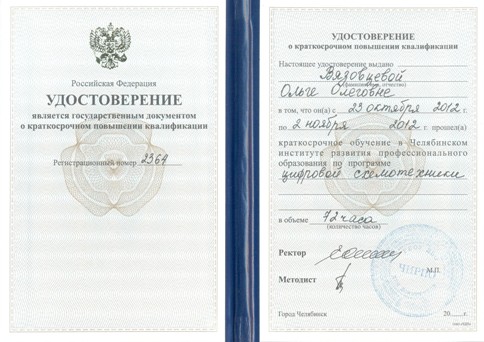 Российская Федерация
УДОСТОВЕРЕНИЕ
является государственным документом
о краткосрочном повышении квалификации
Регистрационный номер 2364
УДОСТОВЕРЕНИЕ
о краткосрочном повышении квалификации
Настоящее удостоверение выдано
Вязовцевой
(фамилия, имя, отчество)
Ольге Олеговне
в том, что он(а) с 23 октября 2012 г.
по 2 ноября 2012 г. прошел(а)
краткосрочное обучение в Челябинском
институте развития профессионального
образования по программе
цифровой схемотехники
в объеме 72 часа
(количество часов)
Ректор
Методист
М.П.
ЧИРПО
Город Челябинск 20 г.